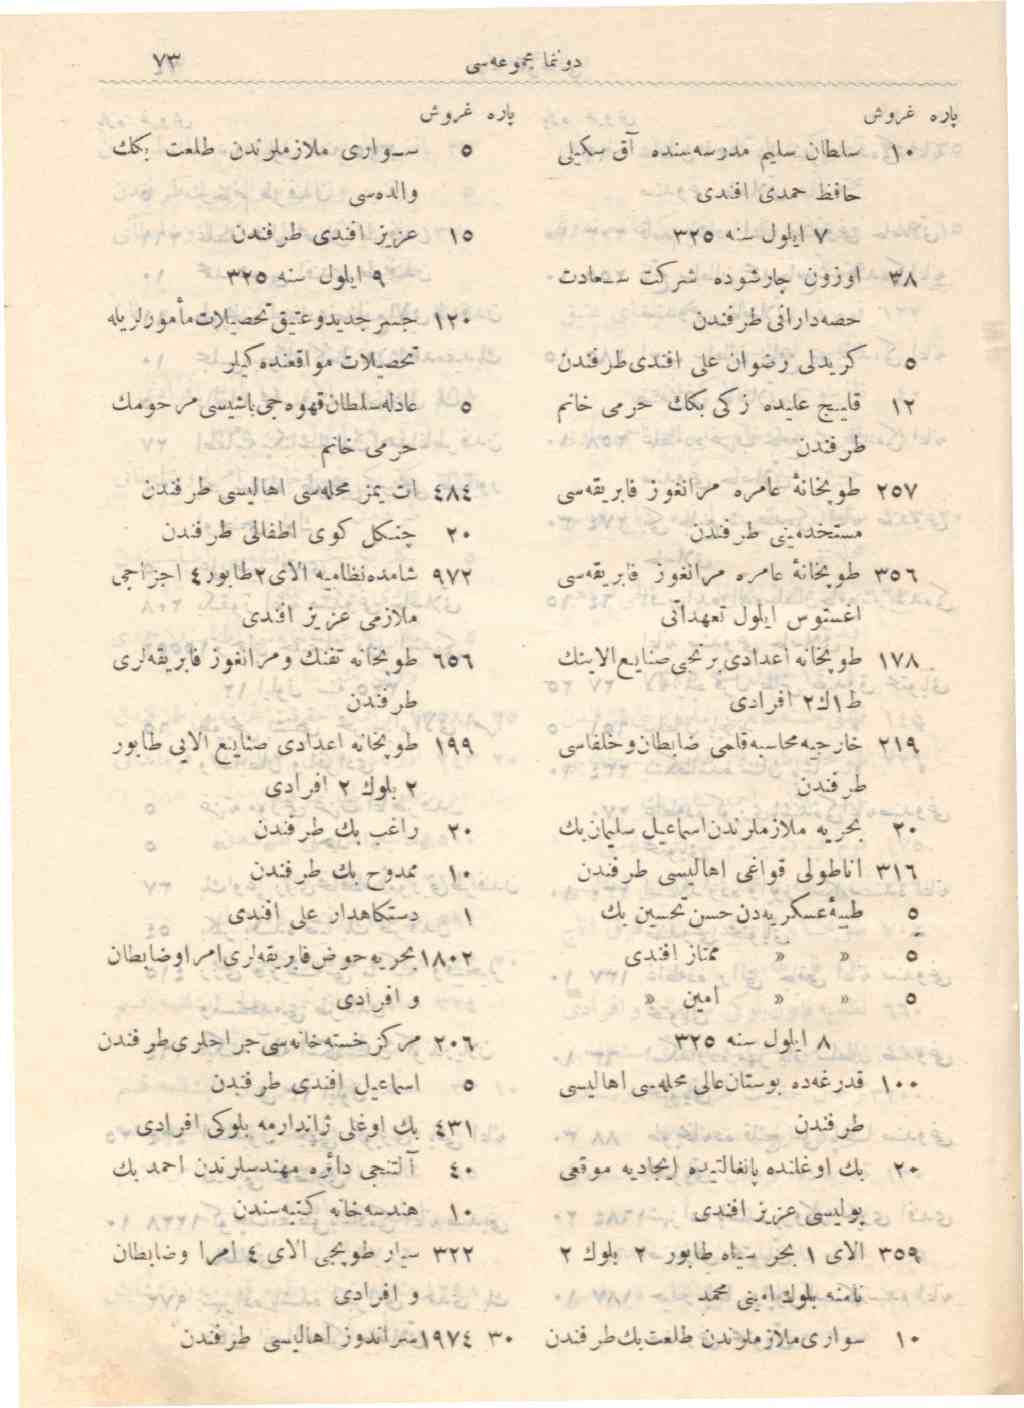 دوننما مجموعه‌سی ٧٣
پاره غروش
١٠ سلطان سلیم مدرسه‌سنده آق سکیلی
حافظ حمدی افندی
٧ ایلول سنه ٣٢٥
٣٨ اوزون چارشوده شركت سـعادت
حصه‌دارانی طرفندن
٥ كریدلی رضوان علی افندی طرفندن
١٢ قایـج علیده زكی بكك حرمی خانم
طرفندن
٢٥٧ طوپخانهٔ عامره مرانغوز فابریقه‌سی
مستخدمینی طرفندن
٣٥٦ طوپخانهٔ عامره مرانغوز فابریقه‌سی
اغستوس ایلول تعهداتی
١٧٨ طوپخانه اعدادی برنجی صنایع الاینك
ط١ك٢ افرادی
٢١٩ خارجیه محاسبه قلمی ضابطان و خلفاسی
طرفندن
٢٠ بحریه ملازملرندن اسماعیل سلیمان بك
٣١٦ اناطولی قواغی اهالیسی طرفندن
٥ طبیهٔ عسكریه‌دن حسن تحسین بك
٥ » » ممتاز افندی
٥ » » امین »
٨ ایلول سنه ٣٢٥
١٠٠ قدرغه‌ده بوستان عالی محله‌سی اهالیسی
طرفندن
٢٠ بك اوغلنده پانغالتیده ایجادیه موقعی
پولیسی عزیز افندی
٣٥٩ الای ١ بحر سیاه طابور ٢ بلوك ٢
نامنه بلوك امینی محمد
١٠ سواری ملازملرندن طلعت بك طرفندن
پاره غروش
٥ سـواری ملازملرندن طلعت بكك
والده‌سی
١٥ عزیز افندی طرفندن
٩ ایلول سنه ٣٢٥
١٢٠ جسر جدید و عتیق تحصیلات مأمورلریله
تحصیلات مواقعنده‌كیلر
٥ عادله سلطان قهوه‌جی باشیسی مرحومك
حرمی خانم
٤٨٤ ات یمز محله‌سی اهالیسی طرفندن
٢٠ چنكل كوی اطفالی طرفندن
٩٧٢ شامده نظامیه الای ٢ طابور ٤ اجزاجی
ملازمی عزیز افندی
٦٥٦ طوپخانه تفنك و مرانغوز فابریقه‌لری
طرفندن
١٩٩ طوپخانه اعدادی صنایع الایی طابور
٢ بلوك ٢ افرادی
٢٠ راغب بك طرفندن
١٠ ممدوح بك طرفندن
١ دستكاهدار علی افندی
١٨٠٢ بحریه حوض فابریقه‌لری امرا و ضابطان
و افرادی
٢٠٦ مركز خسته‌خانه‌سی جراحلری طرفندن
٥ اسماعیل افندی طرفندن
٤٣١ بك اوغلی ژاندارمه بلوكی افرادی
٤٠ آلتنجی دائره مهندسلرندن احمد بك
١٠ هندسه‌خانه كتبه‌سندن
٣٢٢ سیار طوپجی الای ٤ امرا و ضابطان
و افرادی
٣٠ ١٩٧٤ سراندوز اهالیسی طرفندن